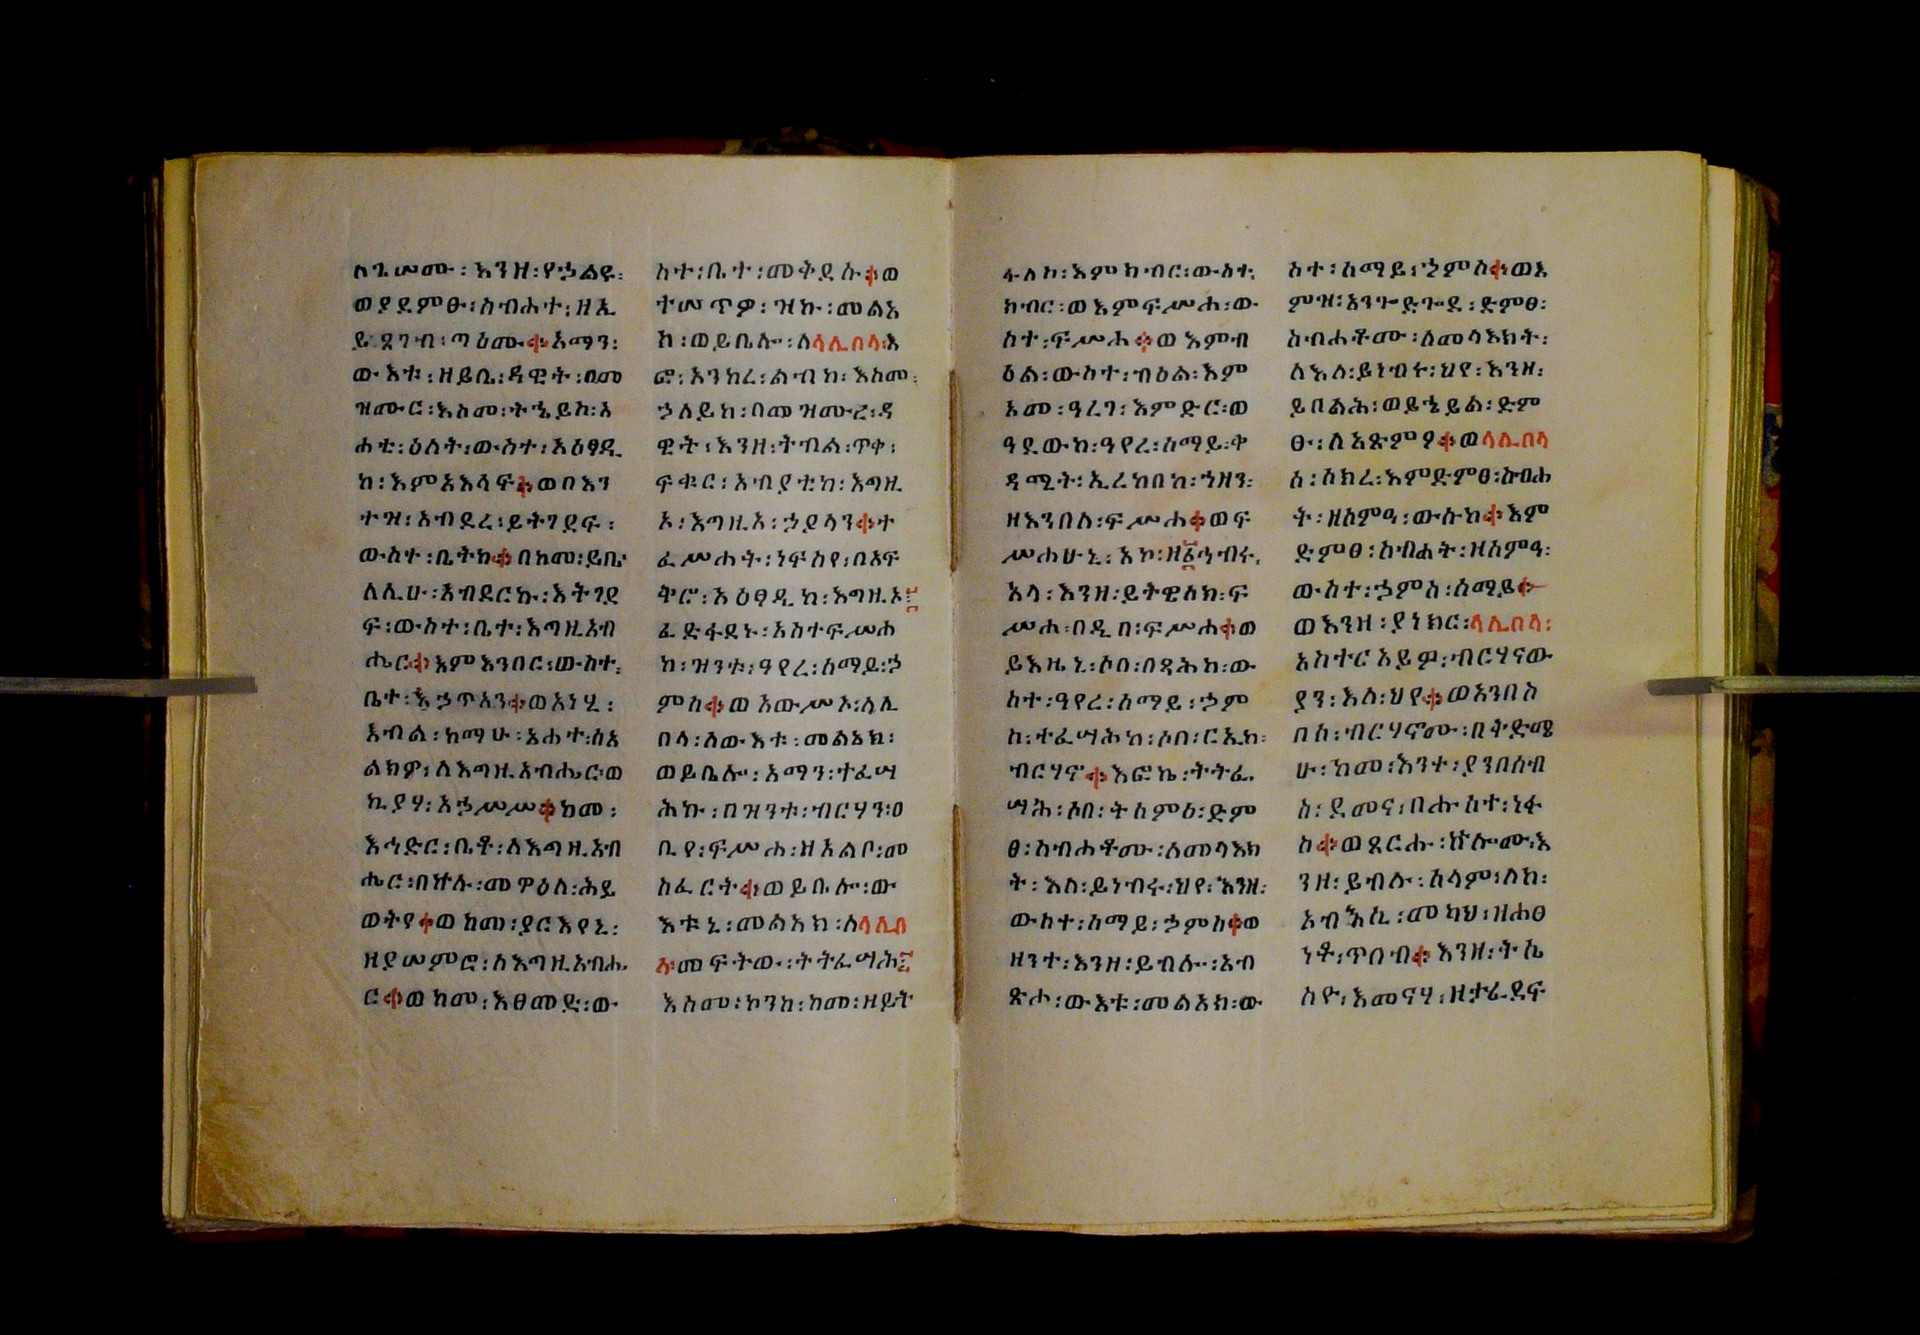 ለጊሠሙ፡እንዘ፡የኃልዩ፡
ወያደምፁ፡ስብሐተ፡ዘኢ
ይጸገብ፡ጣዕሙ።አማን፡
ውእቱ፡ዘይቤ፡ዳዊት፡በመ
ዝሙር፡እስመ፡ትኄይስ፡አ
ሐቲ፡ዕለት፡ውስተ፡አዕፃዲ
ከ፡እምአእላፍ።ወበእን
ተዝ፡አብደረ፡ይትገደፍ፡
ውስተ፡ቤትከ።በከመ፡ይቤ
ለሊሁ፡አብደርኩ፡እትገደ
ፍ፡ውስተ፡ቤተ፡እግዚአብ
ሔር።እምእንበር፡ውስተ፡
ቤተ፡ኃጥአን።ወአነሂ፡
እብል፡ከማሁ፡አሐተ፡ስእ
ልክዎ፡ለእግዚአብሔር፡ወ
ኪያሃ፡አኃሥሥ።ከመ፡
እኅድር፡ቤቶ፡ለእግዚአብ
ሔር፡በኵሉ፡መዋዕለ፡ሕይ
ወትየ።ወከመ፡ያርእየኒ፡
ዘያሠምሮ፡ለእግዚአብሔ
ር።ወከመ፡እፀመድ፡ው
ስተ፡ቤተ፡መቅደሱ።ወ
ተሠጥዎ፡ዝኩ፡መልአ
ክ፡ወይቤሎ፡ለላሊበላ፡እ
ፎ፡አንከረ፡ልብከ፡እስመ፡
ኃለይከ፡በመዝሙረ፡ዳ
ዊት፡እንዘ፡ትብል፡ጥቀ፡
ፍቁር፡አብያቲከ፡እግዚ
ኦ፡እግዚአ፡ኃያላን።ተ
ፈሥሐት፡ነፍስየ፡በአፍ
ቅሮ፡አዕፃዲከ፡እግዚኦ፡
ፈድፋደኑ፡አስተፍሥሐ
ከ፡ዝንቱ፡ዓየረ፡ሰማይ፡ኃ
ምስ።ወአውሥኦ፡ላሊ
በላ፡ለውእቱ፡መልአክ፡
ወይቤሎ፡አማን፡ተፈሣ
ሕኩ፡በዝንቱ፡ብርሃን፡ዐ
ቢየ፡ፍሥሐ፡ዘአልቦ፡መ
ስፈርት።ወይቤሎ፡ው
እቱኒ፡መልአክ፡ለላሊበ
ላ፡መፍትው፡ትትፈሣሕ፡
እስመ፡ኮንከ፡ከመ፡ዘይት
ፋለስ፡እምክብር፡ውስተ፡
ክብር፡ወእምፍሥሐ፡ው
ስተ፡ፍሥሐ።ወእምብ
ዕል፡ውስተ፡ብዕል፡እም
አመ፡ዓረገ፡እምድር፡ወ
ዓደውከ፡ዓየረ፡ሰማይ፡ቀ
ዳሚት፡ኢረከበከ፡ኀዘን፡
ዘእንበለ፡ፍሥሐ።ወፍ
ሥሐሁኒ፡አኮ፡ዘ፩ኅብሩ፡
አላ፡እንዘ፡ይትዌለክ፡ፍ
ሥሐ፡በዲበ፡ፍሥሐ።ወ
ይእዜኒ፡ሶበ፡በጻሕከ፡ው
ስተ፡ዓየረ፡ሰማይ፡ኃም
ስ፡ተፈሣሕከ፡ሶበ፡ርኢከ፡
ብርሃኖ።እፎኬ፡ትትፈ
ሣሕ፡ሶበ፡ትሰምዕ፡ድም
ፀ፡ስብሐቶሙ፡ለመላእክ
ት፡እለ፡ይነብሩ፡ህየ፡እንዘ፡
ውስተ፡ሰማይ፡ኃምስ።ወ
ዘንተ፡እንዘ፡ይብሎ፡አብ
ጽሖ፡ውእቱ፡መልአክ፡ው
ስተ፡ሰማይ፡ኃምስ።ወእ
ምዝ፡አንጐድጐደ፡ድምፀ፡
ስብሐቶሙ፡ለመላእክት፡
ለእለ፡ይነብሩ፡ህየ፡እንዘ፡
ይበልሕ፡ወይኄይል፡ድም
ፁ፡ለአጽምዖ።ወላሊበላ
ሰ፡ሰክረ፡እምድምፀ፡ስብሐ
ት፡ዘሰምዓ፡ውሱከ።እም
ድምፀ፡ስብሐት፡ዘሰምዓ፡
ውስተ፡ኃምስ፡ሰማይ።
ወእንዘ፡ያነክር፡ላሊበላ፡
አስተርአይዎ፡ብርሃናው
ያን፡እለ፡ህየ።ወእንበለ
በስ፡ብርሃኖሙ፡በቅድሜ
ሁ፡ከመ፡እንተ፡ያንበሰብ
ስ፡ደመና፡በሑስተ፡ነፋ
ስ።ወጸርሑ፡ኵሎሙ፡እ
ንዘ፡ይብሉ፡ሰላም፡ለከ፡
አብእሲ፡መካህ፡ዘሐፀ
ነቶ፡ጥበብ።እንዘ፡ትሴ
ስዮ፡እመናሃ፡ዘታፈደፍ